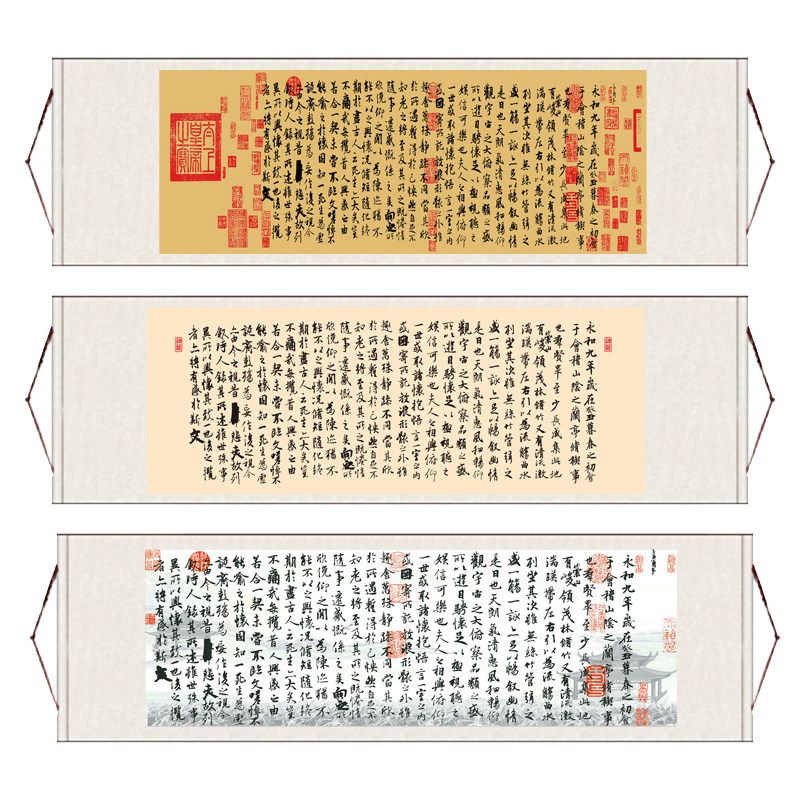 永和九年歲在癸丑暮春之初會
于會稽山陰之蘭亭脩稧事
也羣賢畢至少長咸集此地
有崇山峻領茂林脩竹又有清流激
湍暎帶左右引以為流觴曲水
列坐其次雖無絲竹管弦之
盛一觴一詠亦足以暢敘幽情
是日也天朗氣清惠風和暢仰
觀宇宙之大俯察品類之盛
所以遊目騁懷足以極視聽之
娛信可樂也夫人之相與俯仰
一世或取諸懷抱悟言一室之內
或因寄所託放浪形骸之外雖
趣舍萬殊靜躁不同當其欣
於所遇蹔得於己怏然自足不
知老之將至及其所之既惓情
隨事遷感慨係之矣向之所
欣俛仰之閒以為陳迹猶不
能不以之興懷況脩短隨化終
期於盡古人云死生亦大矣豈
不痛哉每攬昔人興感之由
若合一契未嘗不臨文嗟悼不
能喻之於懷固知一死生為虛
誕齊彭殤為妄作後之視今
亦由今之視昔悲夫故列
敘時人錄其所述雖世殊事
異所以興懷其致一也後之攬
者亦將有感於斯文
太上皇帝之寶
永和九年歲在癸丑暮春之初會
于會稽山陰之蘭亭脩稧事
也羣賢畢至少長咸集此地
有崇山峻領茂林脩竹又有清流激
湍暎帶左右引以為流觴曲水
列坐其次雖無絲竹管弦之
盛一觴一詠亦足以暢敘幽情
是日也天朗氣清惠風和暢仰
觀宇宙之大俯察品類之盛
所以遊目騁懷足以極視聽之
娛信可樂也夫人之相與俯仰
一世或取諸懷抱悟言一室之內
或因寄所託放浪形骸之外雖
趣舍萬殊靜躁不同當其欣
於所遇蹔得於己怏然自足不
知老之將至及其所之既惓情
隨事遷感慨係之矣向之所
欣俛仰之閒以為陳迹猶不
能不以之興懷況脩短隨化終
期於盡古人云死生亦大矣豈
不痛哉每攬昔人興感之由
若合一契未嘗不臨文嗟悼不
能喻之於懷固知一死生為虛
誕齊彭殤為妄作後之視今
亦由今之視昔悲夫故列
敘時人錄其所述雖世殊事
異所以興懷其致一也後之攬
者亦將有感於斯文
永和九年歲在癸丑暮春之初會
于會稽山陰之蘭亭脩稧事
也羣賢畢至少長咸集此地
有崇山峻領茂林脩竹又有清流激
湍暎帶左右引以為流觴曲水
列坐其次雖無絲竹管弦之
盛一觴一詠亦足以暢敘幽情
是日也天朗氣清惠風和暢仰
觀宇宙之大俯察品類之盛
所以遊目騁懷足以極視聽之
娛信可樂也夫人之相與俯仰
一世或取諸懷抱悟言一室之內
或因寄所託放浪形骸之外雖
趣舍萬殊靜躁不同當其欣
於所遇蹔得於己怏然自足不
知老之將至及其所之既惓情
隨事遷感慨係之矣向之所
欣俛仰之閒以為陳迹猶不
能不以之興懷況脩短隨化終
期於盡古人云死生亦大矣豈
不痛哉每攬昔人興感之由
若合一契未嘗不臨文嗟悼不
能喻之於懷固知一死生為虛
誕齊彭殤為妄作後之視今
亦由今之視昔悲夫故列
敘時人錄其所述雖世殊事
異所以興懷其致一也後之攬
者亦將有感於斯文